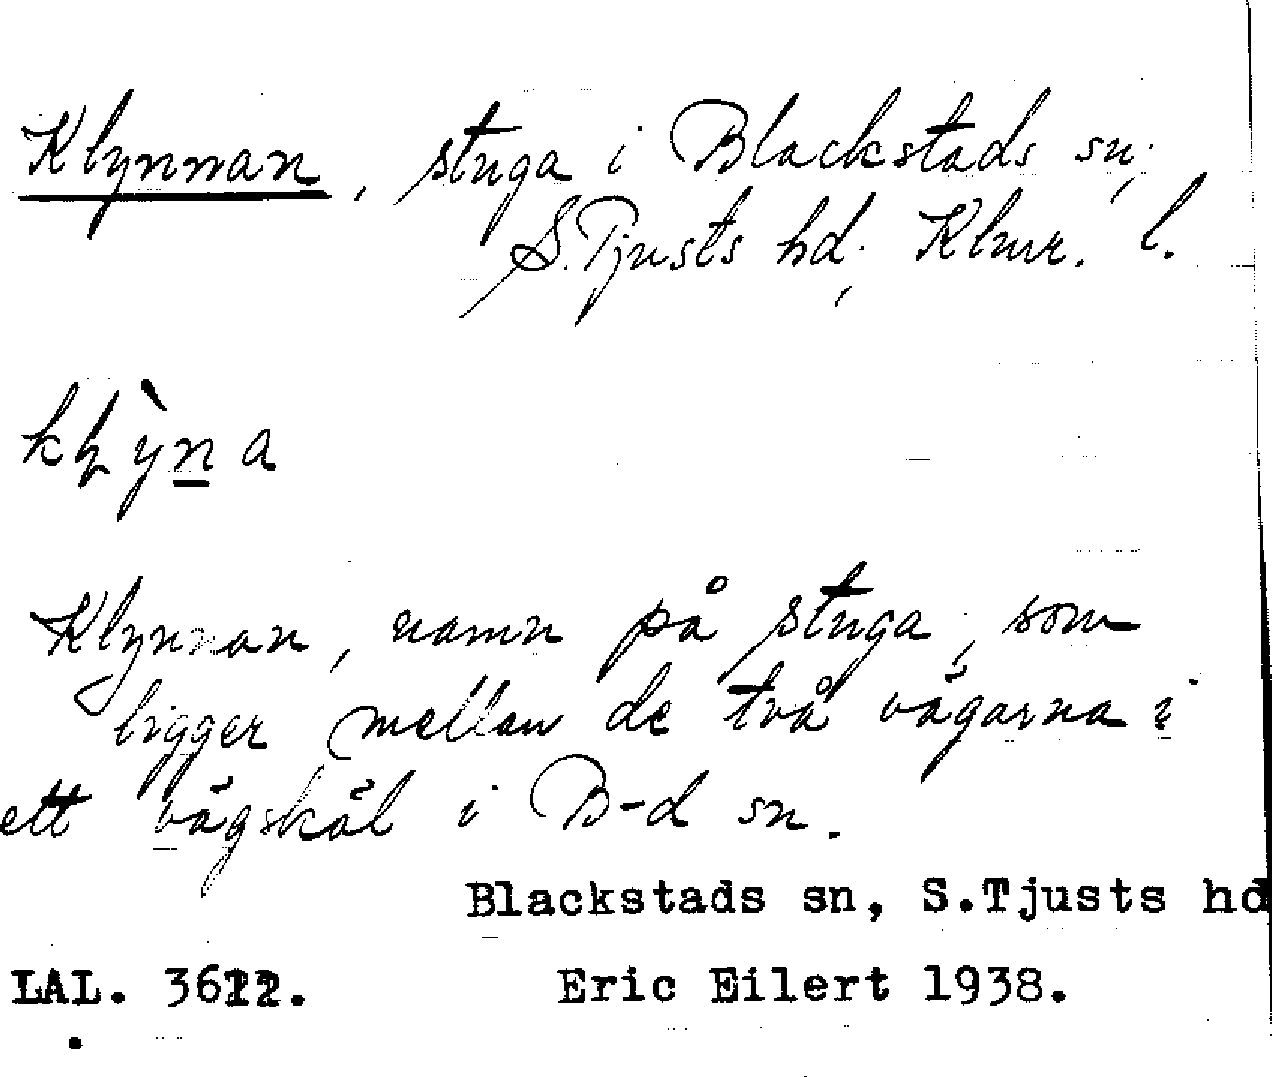 Klynnan, stuga i Blackstads sn,
S. Tjusts hd, Klmr. l.
kḷỳna
Klynnan, namn på stuga, som
ligger mellan de två vägarna i
ett vägskäl i B-d sn.
Blackstads sn, S.Tjusts hd
LAL. 3612. Eric Eilert 1938.